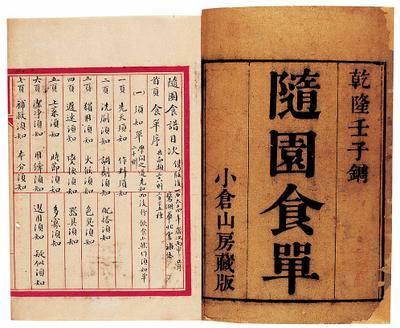 乾隆壬子鐫
隨園食單
小倉山房藏版
隨園食譜目次
首頁 食單序
(一) 須知單
一頁 先天須知 作料須知
二頁 洗刷須知 調劑須知 配搭須知
三頁 獨用須知 火候須知 色臭須知
四頁 遲速須知 變換須知 器具須知
五頁 上菜須知 時節須知 多寡須知
六頁 潔淨須知 用縴須知 選用須知 疑似須知
七頁 補救須知 本分須知